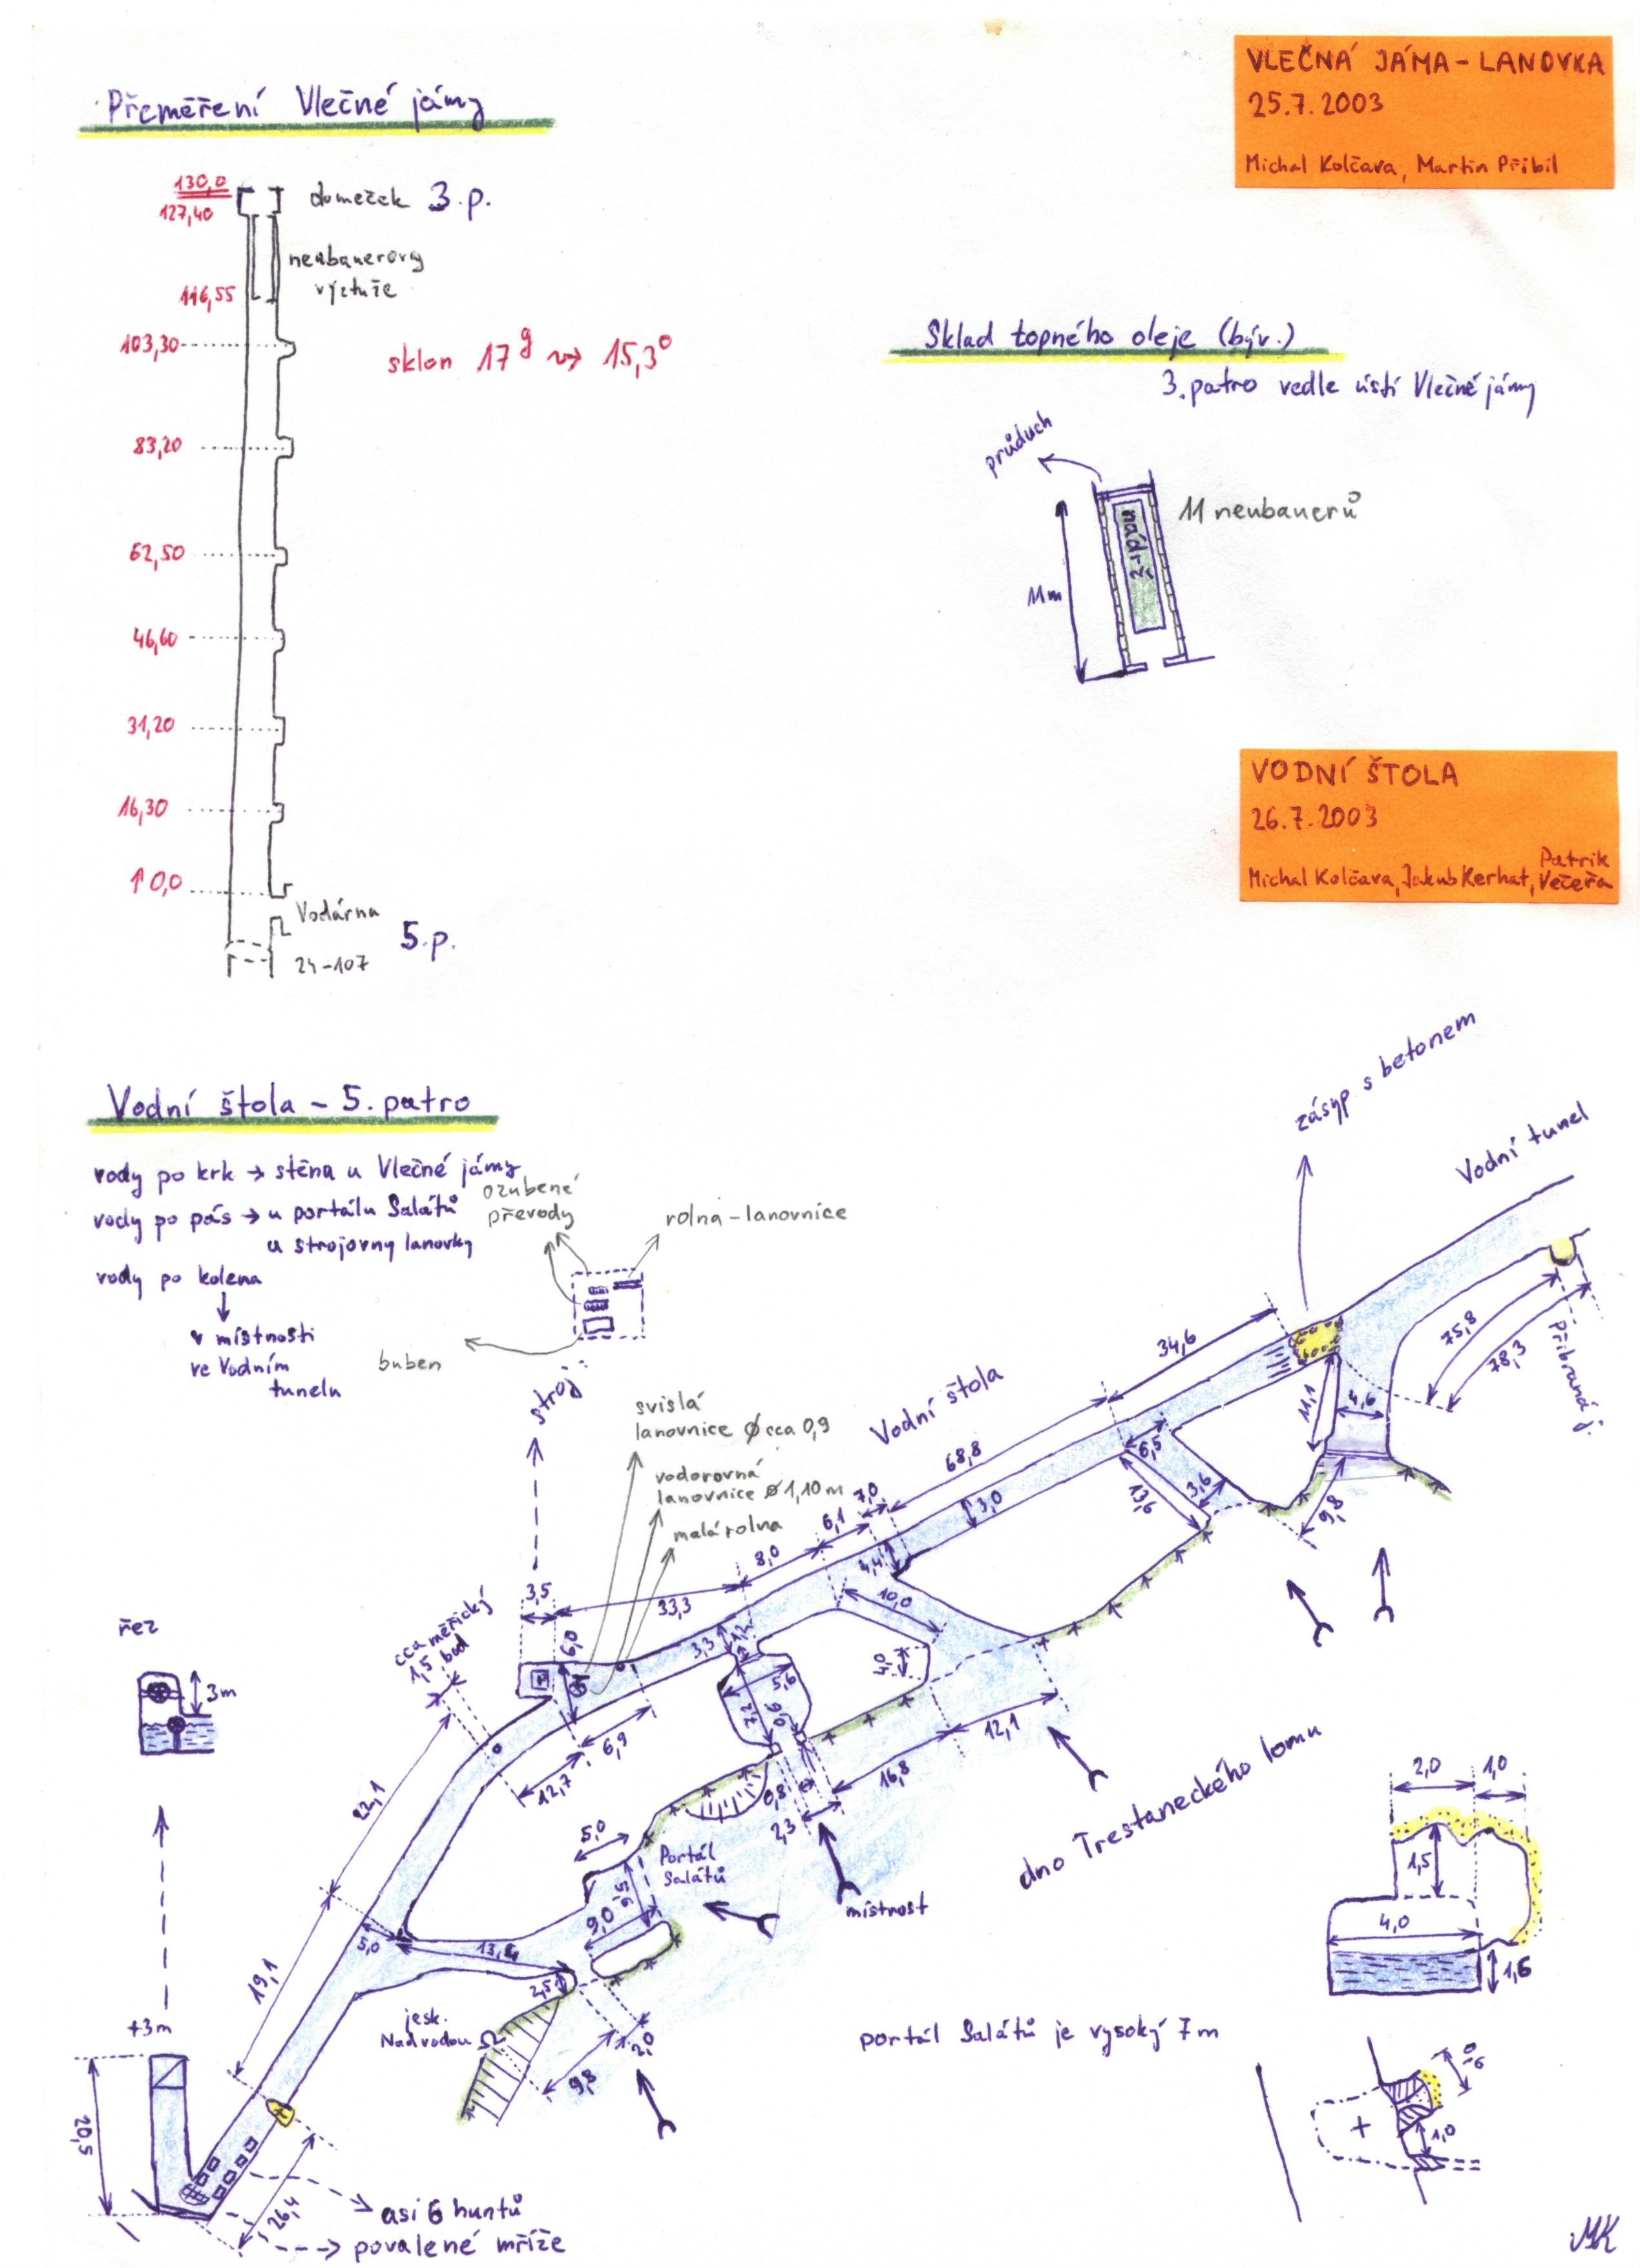 VLEČNÁ JÁMA - LANOVKA
25.7.2003
Michal Kolčava, Martin Přibil
Přeměření Vlečné jámy
130,0
127,40
domeček 3.p.
neubauerovy
výztuže
116,55
103,30
sklon 17g → 15,3°
83,20
62,50
46,60
31,20
16,30
↑ 0,0
Vodárna
5.p.
24-107
Sklad topného oleje (býv.)
3.patro vedle ústí Vlečné jámy
průduch
11 neubauerů
nádrž
11m
VODNÍ ŠTOLA
26.7.2003
Michal Kolčava, Jakub Kerhat, Patrik Večeřa
Vodní štola - 5. patro
vody po krk → stěna u Vlečné jámy
vody po pás → u portálu Salátů
u strojovny lanovky
vody po kolena
↓
v místnosti
ve Vodním
tunelu
ozubené
převody
rolna-lanovnice
buben
stroj:
svislá
lanovnice Ø cca 0,9
vodorovná
lanovnice Ø 1,10 m
malá rolna
zásyp s betonem
Vodní tunel
Přibraná j.
75,8
78,3
34,6
11,1
4,6
Vodní štola
68,8
6,5
13,6
3,6
9,8
3,0
7,0
6,1
8,0
4,4
10,0
33,3
3,5
6,0
3,3
1,2
5,6
7,2
4,0
12,1
16,8
0,8
2,3
cca měřický
1,5 bod
6,9
12,7
22,1
řez
3m
5,0
Portál
Salátů
9,0
místnost
dno Trestaneckého lomu
5,0
13,4
2,5
19,1
jesk.
Nad vodou
2,0
9,8
+3m
20,5
26,4
asi 6 huntů
povalené mříže
portál Salátů je vysoký 7m
2,0
1,0
1,5
4,0
1,6
1,0
MK